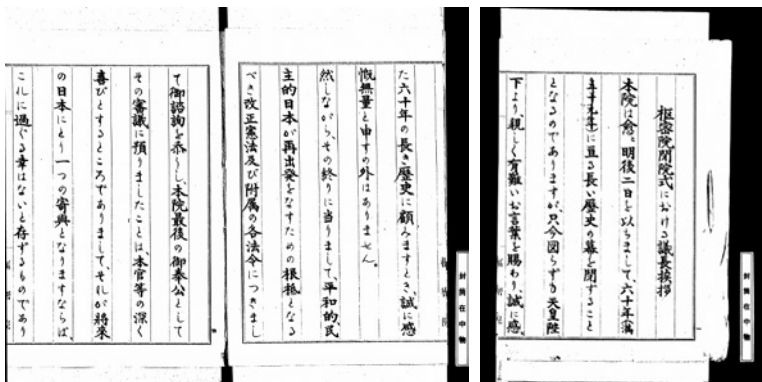 枢密院閉院式における議長挨拶
本院は愈〻明後二日を以ちまして、六十年
に亘る長い歴史の幕を閉ずること
となるのでありますが、只今図らずも天皇陛
下より、親しく有難いお言葉を賜わり、誠に感
封筒在中物
た六十年の長き歴史に顧みますとき、誠に感
慨無量と申すの外はありません。
然しながら、その終りに当りまして、平和的、民
主的日本が再出発をなすための根柢となる
べき改正憲法及び附属の各法令につきまし
て御諮詢を忝うし、本院最後の御奉公として
その審議に預りましたことは、本官等の深く
喜びとするところでありまして、それが将来
の日本にとり一つの寄与となりますならば、
これに過ぐる幸はないと存ずるものであり
封筒在中物